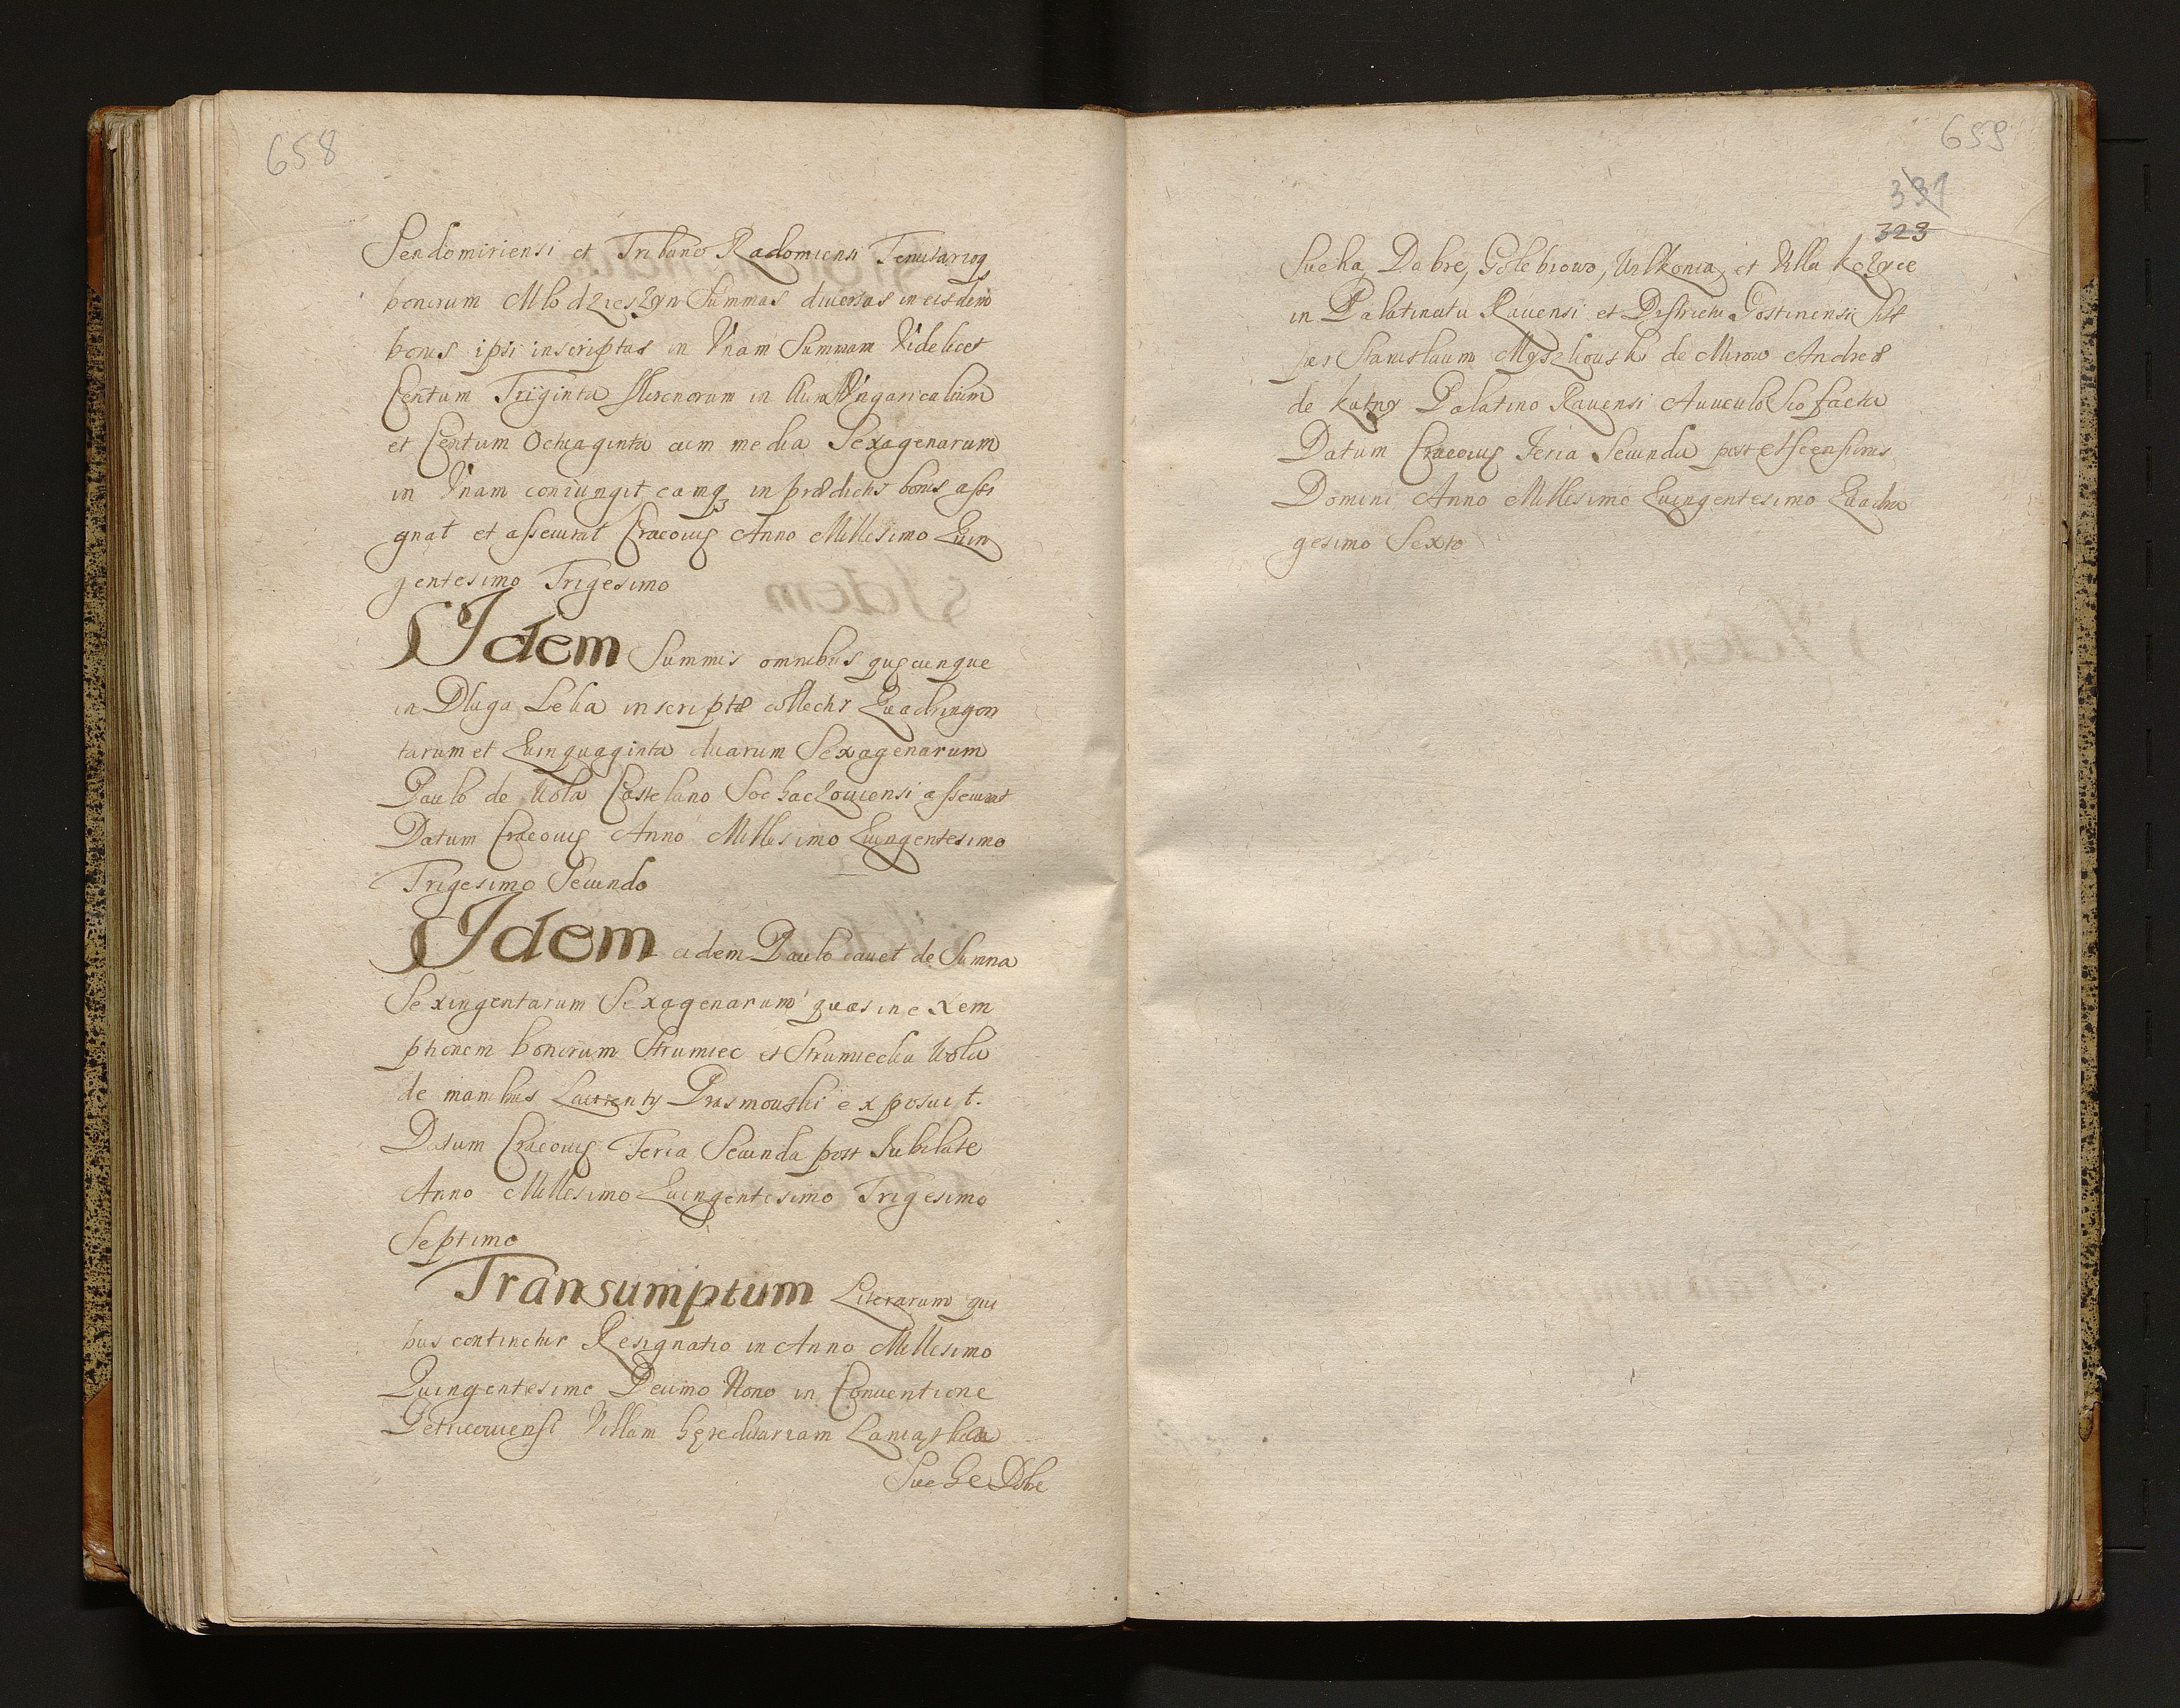 658
Sendomiriensi et Tribuno Radomiensi Tenutarioq
bonorum Mlodzieszyn Summas diuersas in eisdem
bonis ipsi inscriptas in Vnam Summam Videlicet
Centum Triginta florenorum in Auro Vngaricalium
et Centum Octuaginta cum media Sexagenarum
in Vnam coniungit eamq, in prædictis bonis assi
gnat et assecurat Cracouię Anno Millesimo Quin
gentesimo Trigesimo
Idem Summis omnibus quęcunque
in Dluga Leka inscriptæ collectis Quadringen
tarum et Quinquaginta duarum Sexagenarum
Paulo de Wola Castelano Sochaczouiensi assecurat
Datum Cracouię Anno Millesimo Quingentesimo
Trigesimo Secundo
Idem eidem Paulo cauet de Summa
Sexingentarum Sexagenarum quas in exem
ptionem bonorum Strumiec et Strumiecka Wola
de manibus Laurenty Prasmouski exposuit.
Datum Cracouię Feria Secunda post Iubilate
Anno Millesimo Quingentesimo Trigesimo
Septimo
Transumptum Literarum qui
bus continetur Resignatio in Anno Millesimo
Quingentesimo Decimo Nono in Conuentione
Petricouiensi Villam hęreditariam
Suche Dobre
659
331
323
Sucha, Dobre, Golebiowo, Wilkonia, et Villa
in Palatinatu Rauensi et Districtu Gostinensi
per Stanislaum Myszkouski de Mirow Andreæ
de Kutno Palatino Rauensi Auuculo Sio facta
Datum Cracouię Feria Secunda post Ascensionis
Domini Anno Millesimo Quingentesimo Quadra
gesimo Sexto